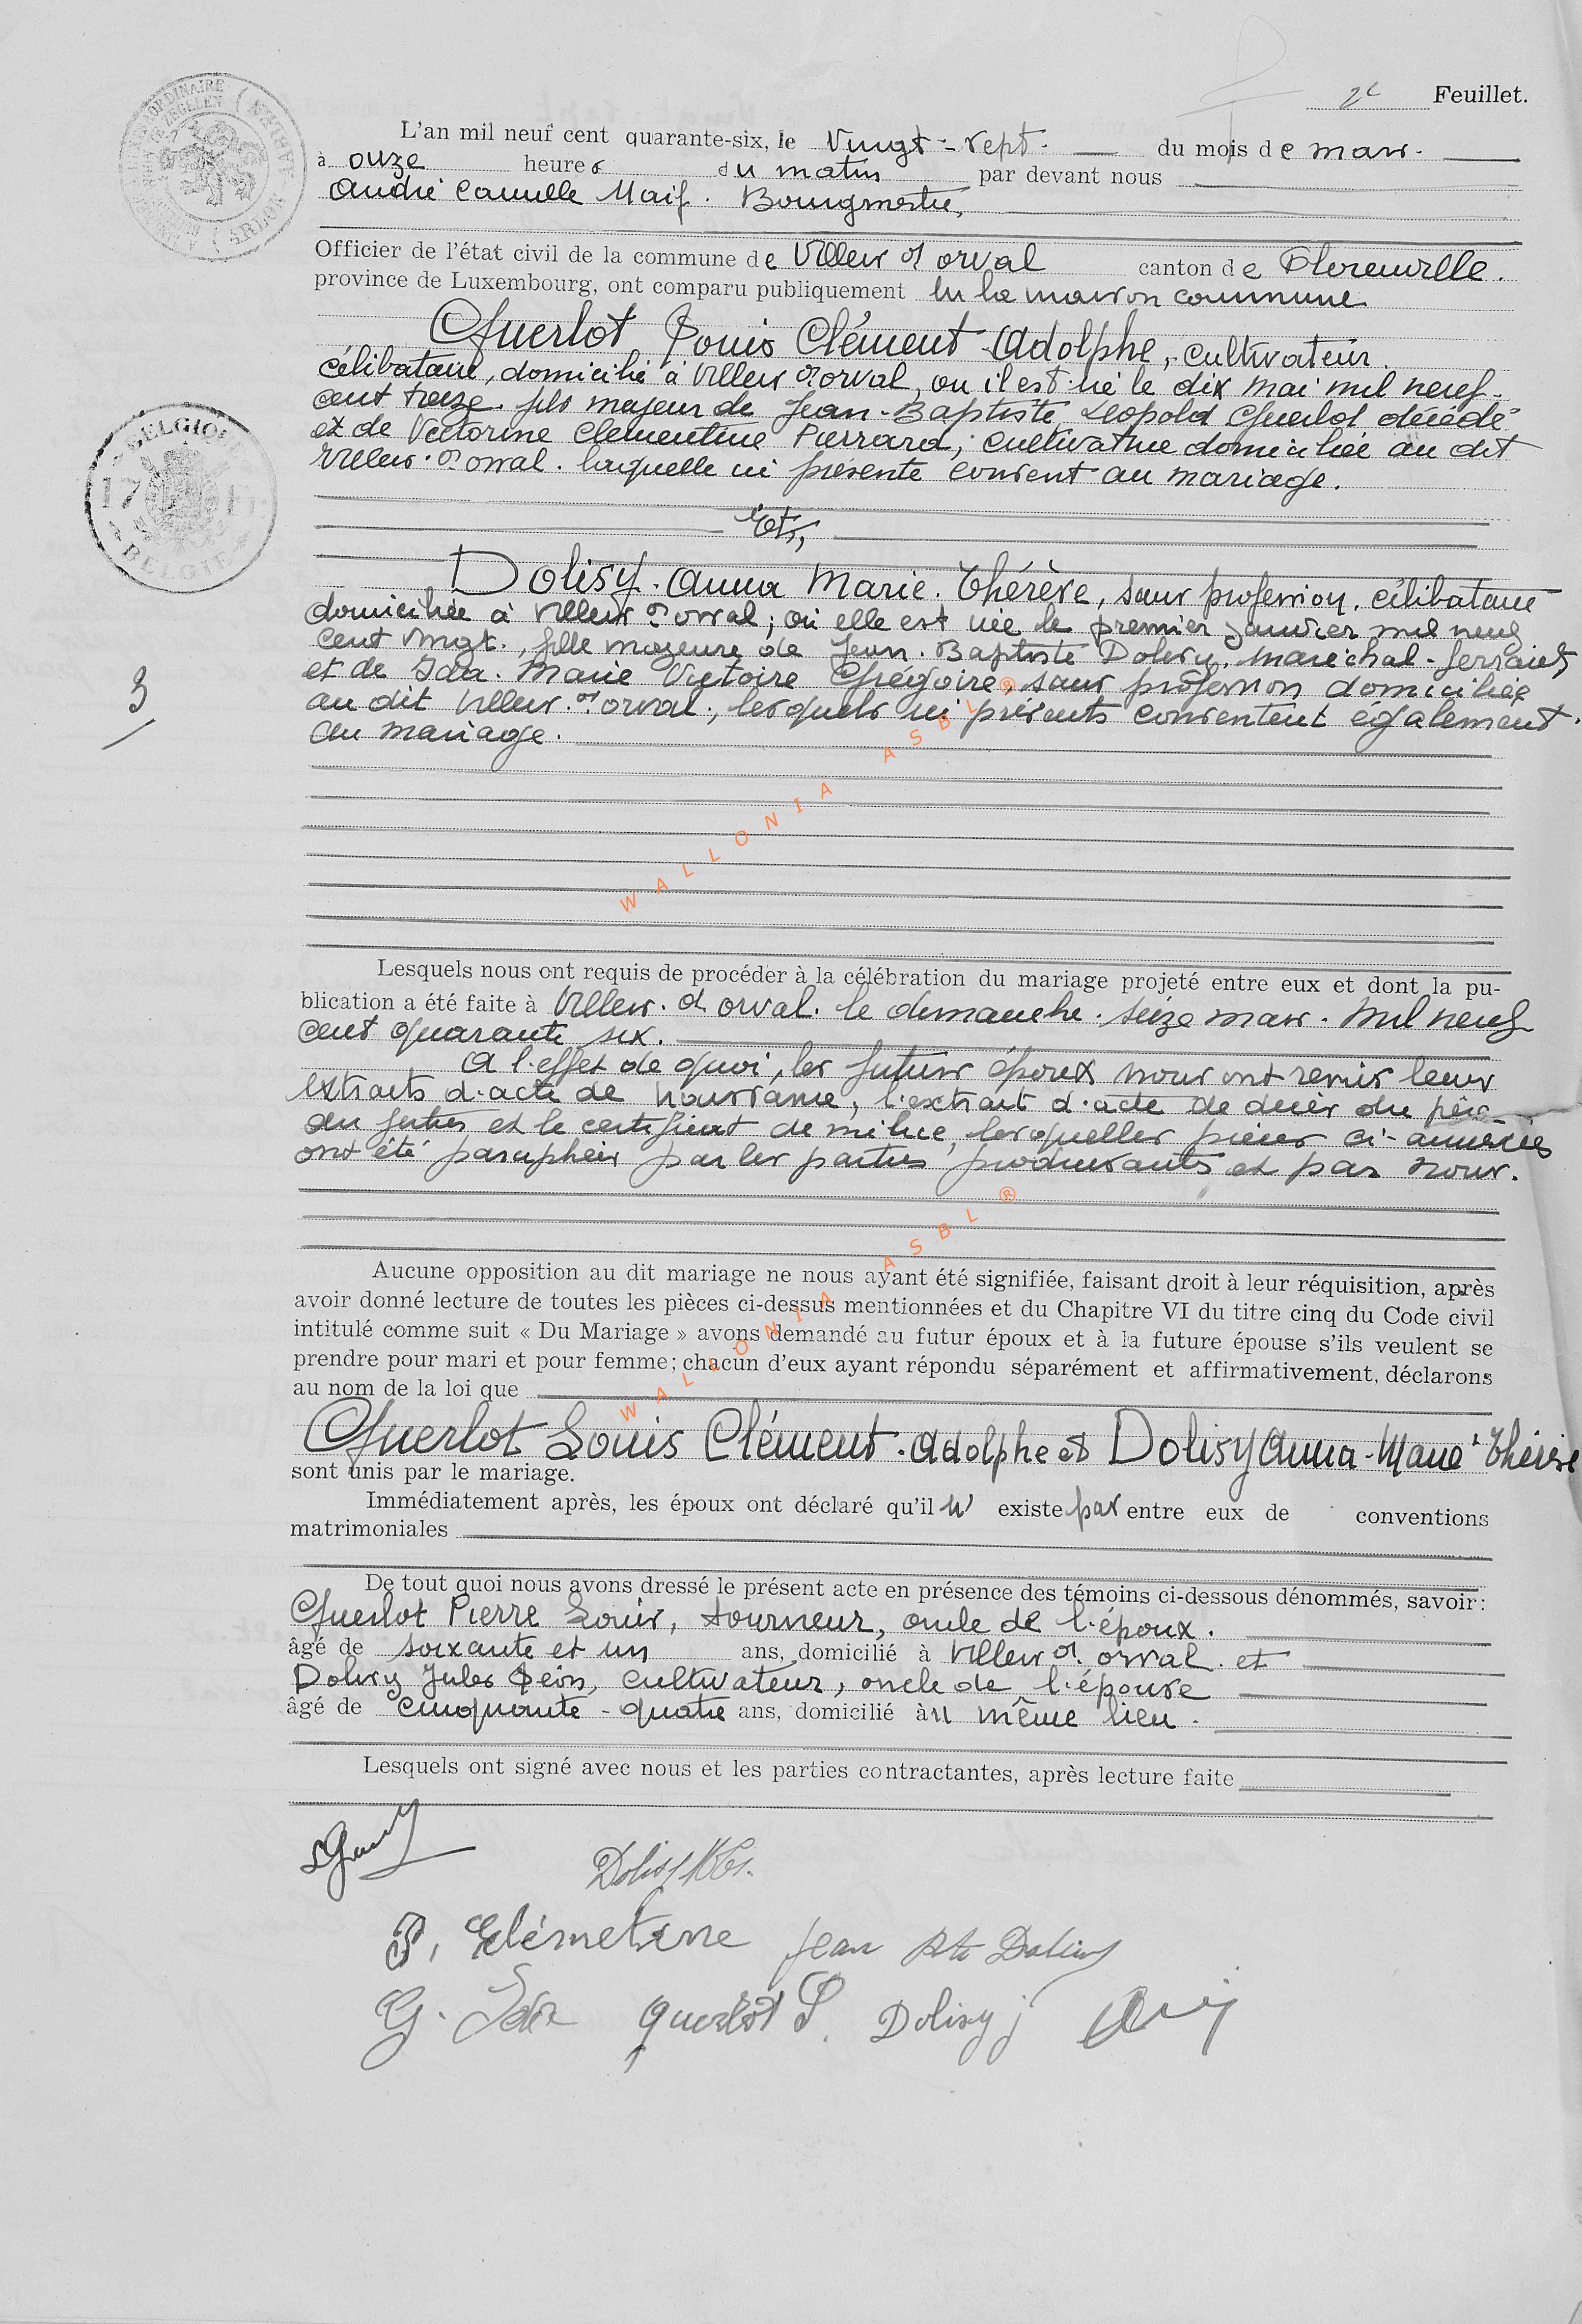 2e Feuillet.
L'an mil neuf cent quarante-six, le Vingt-sept du mois de mars.
à onze heures du matin par devant nous
André Camille Bourgmestre,
Officier de l'état civil de la commune de Villers d'orval canton de Florenville.
province de Luxembourg, ont comparu publiquement en la maison commune
Guerlot Louis Clément Adolphe, cultivateur.
célibataire, domicilié à Villers d'orval, ou il est né le dix mai mil neuf-
cent treize. fils majeur de Jean-Baptiste Léopold Guerlot décédé
et de Victorine Clémentine Pierrard, cultivatrice domiciliée au dit
Villers d'orval. laquelle ici présente consent au mariage.
Et,
Dolisy. Anna Marie. Thérèse, sans profession. célibataire
domiciliée à Villers d'orval, où elle est née le premier janvier mil neuf
cent vingt., fille majeure de Jean. Baptiste Dolisy. maréchal-ferrant
et de Ida. Marie Victoire Grégoire, sans profession domiciliés
au dit Villers. d'orval., lesquels ici présents consentent également.
au mariage.
3
Lesquels nous ont requis de procéder à la célébration du mariage projeté entre eux et dont la pu-
blication a été faite à Villers. d'orval. le dimanche. seize mars. mil neuf
cent quarante six.
A l'effet de quoi, les futurs époux nous ont remis leurs
extraits d'acte de naissance, l'extrait d'acte de décès du père
du futur et le certificat de milice, lesquelles pièces ci-annexées
ont été paraphées par les parties produisants et par nous.
Aucune opposition au dit mariage ne nous ayant été signifiée, faisant droit à leur réquisition, après
avoir donné lecture de toutes les pièces ci-dessus mentionnées et du Chapitre VI du titre cinq du Code civil
intitulé comme suit « Du Mariage » avons demandé au futur époux et à la future épouse s'ils veulent se
prendre pour mari et pour femme; chacun d'eux ayant répondu séparément et affirmativement, déclarons
au nom de la loi que
Guerlot Louis Clément. Adolphe et Dolisy Anna-Marie Thérèse
sont unis par le mariage.
Immédiatement après, les époux ont déclaré qu'il n' existe pas entre eux de conventions
matrimoniales
De tout quoi nous avons dressé le présent acte en présence des témoins ci-dessous dénommés, savoir:
Guerlot Pierre Louis, tourneur, oncle de l'époux.
âgé de soixante et un ans, domicilié à Villers d'orval. et
Dolisy Jules Léon, cultivateur, oncle de l'épouse
âgé de cinquante-quatre ans, domicilié au même lieu.
Lesquels ont signé avec nous et les parties contractantes, après lecture faite
P, Clémetine Jean Bte Dolisy
G. Ida Guerlot P. Dolisy j
BELGIQUE
17 17
BELGIE
ARLON
WALLONIA ASBL ®
WALLONIA ASBL ®